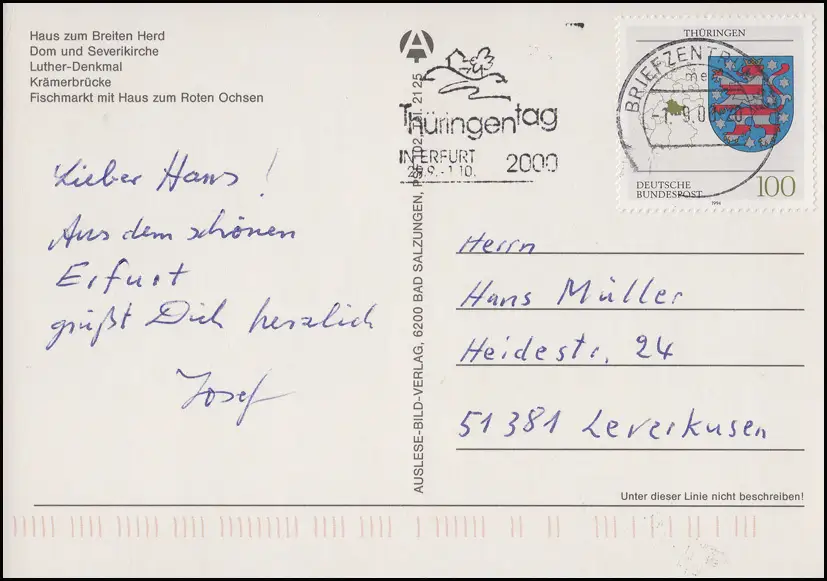 Haus zum Breiten Herd
Dom und Severikirche
Luther-Denkmal
Krämerbrücke
Fischmarkt mit Haus zum Roten Ochsen
Lieber Hans!
Aus dem schönen
Erfurt
grüßt Dich herzlich
Josef
AUSLESE-BILD-VERLAG, 6200 BAD SALZUNGEN, PSF 102, Tel. 21 25
Thüringentag
IN ERFURT 2000
29.9.-1.10.
BRIEFZENTR
THÜRINGEN
DEUTSCHE
BUNDESPOST 100
1994
Herrn
Hans Müller
Heidestr. 24
51381 Leverkusen
Unter dieser Linie nicht beschreiben!